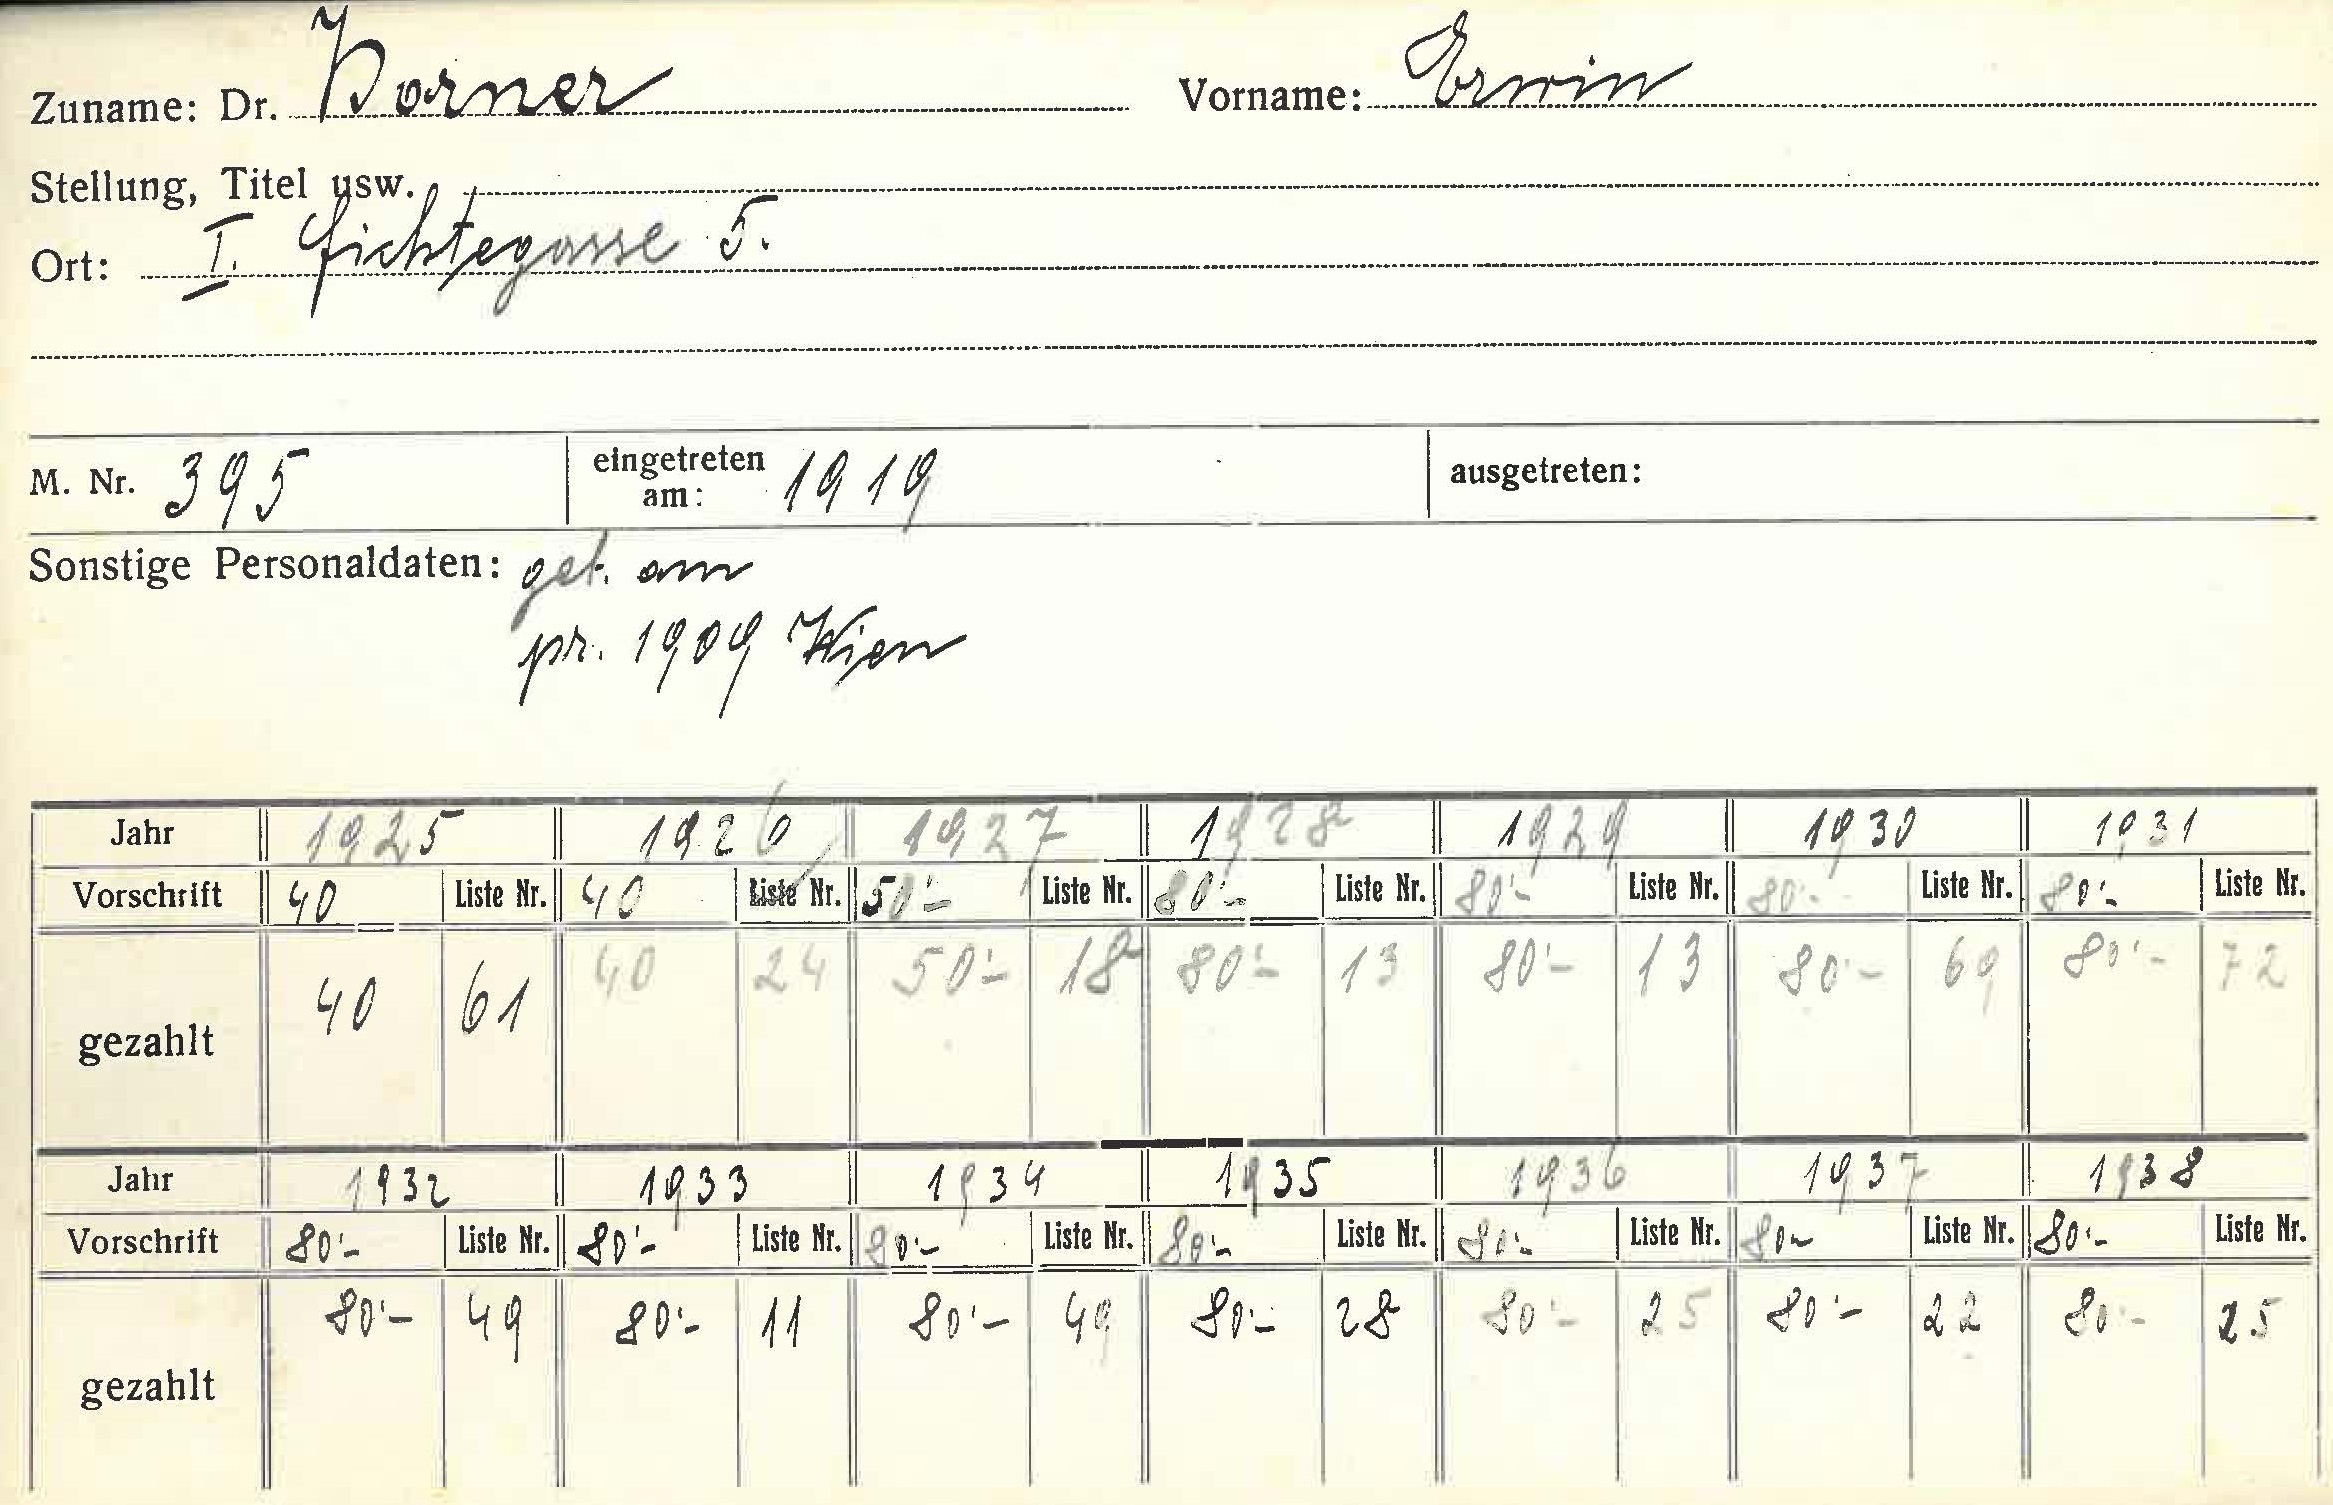 Zuname: Dr. Dorner Vorname: Erwin
Stellung, Titel usw.
Ort: I. Fichtegasse 5.
M. Nr. 395 eingetreten am: 1919 ausgetreten:
Sonstige Personaldaten: geb. am
pr. 1909 Wien
Jahr 1925 1926 1927 1928 1929 1930 1931
Vorschrift 40 Liste Nr. 40 Liste Nr. 50'- Liste Nr. 80'- Liste Nr. 80'- Liste Nr. 80'- Liste Nr. 80'- Liste Nr.
gezahlt 40 61 40 24 50'- 18 80'- 13 80'- 13 80'- 69 80'- 72
Jahr 1932 1933 1934 1935 1936 1937 1938
Vorschrift 80'- Liste Nr. 80'- Liste Nr. 80'- Liste Nr. 80'- Liste Nr. 80'- Liste Nr. 80'- Liste Nr. 80'- Liste Nr.
gezahlt 80'- 49 80'- 11 80'- 49 80'- 28 80'- 25 80'- 22 80'- 25